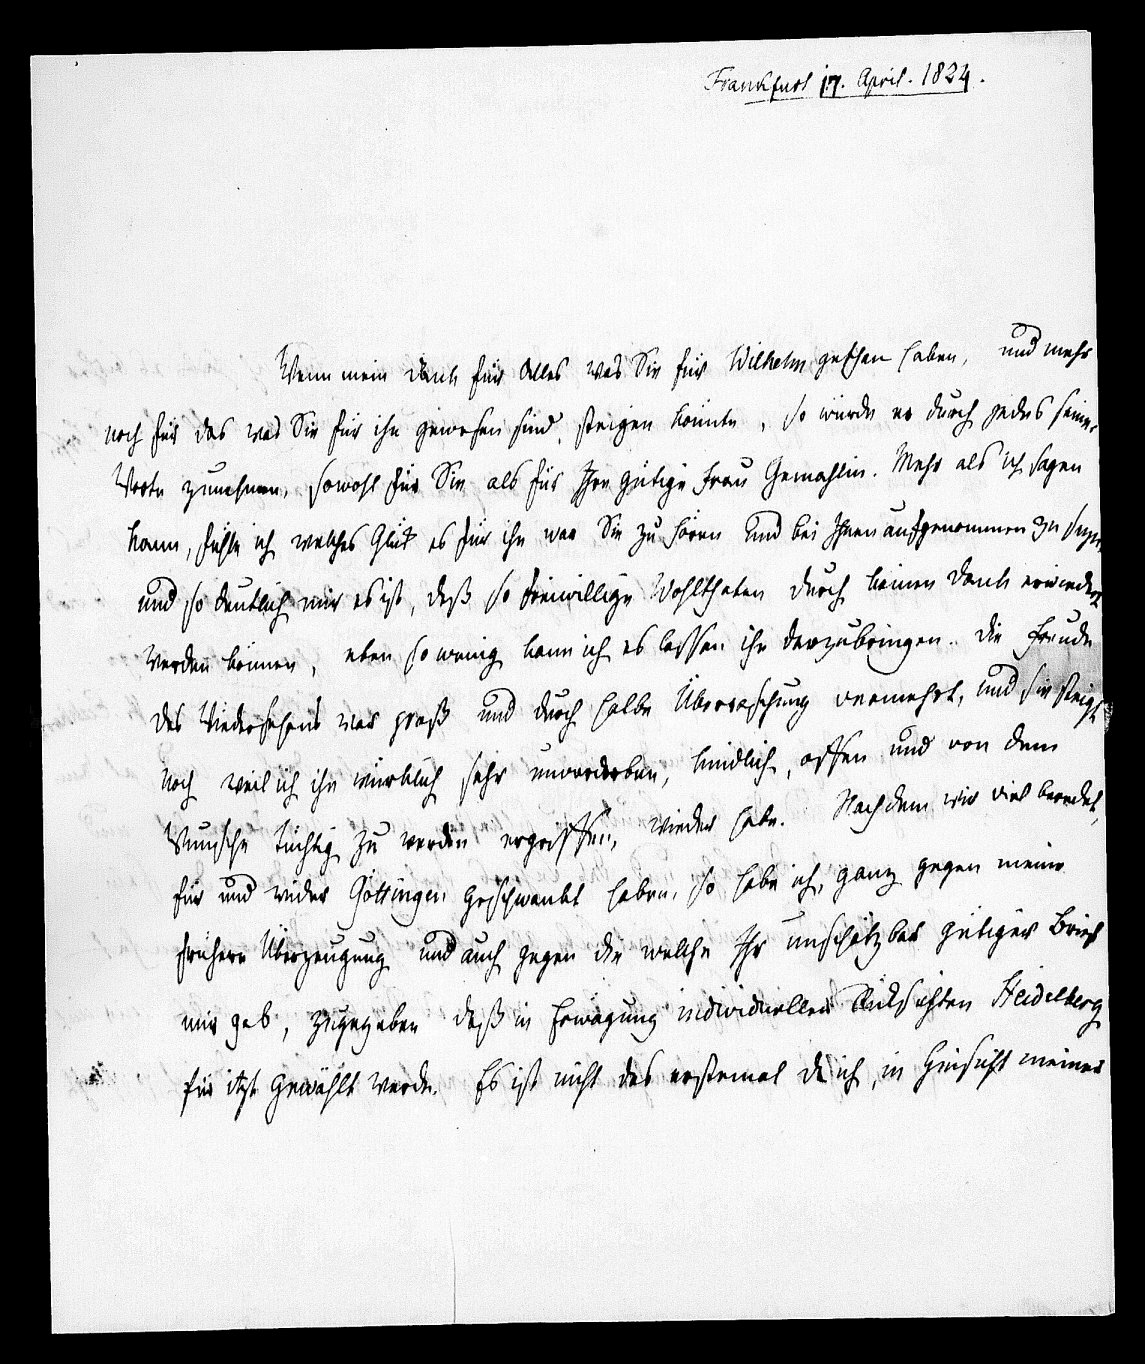 Frankfurt 17. April. 1824.
Wenn mein Dank für Alles was Sie für Wilhelm gethan haben, und mehr
noch für das was Sie für ihn gewesen sind, steigen könnte, so würde er durch jedes seiner
Worte zunehmen, sowohl für Sie als für Ihre gütige Frau Gemahlin. Mehr als ich sagen
kann, fühle ich welches Glük es für ihn war Sie zu hören und bei Ihnen aufgenommen zu seyn,
und so deutlich mir es ist, daß so freiwillige Wohlthaten durch keinen Dank erwiedert
werden können, eben so wenig kann ich es lassen ihn darzubringen. Die Freude
des Wiedersehens war groß und durch halbe Überraschung vermehrt, und sie steigt
noch weil ich ihn würklich sehr unverdorben, kindlich, offen und von dem
Wunsche tüchtig zu werden ergriffen, wieder habe. Nachdem wir viel beredet,
für und wider Göttingen geschwankt haben, so habe ich, ganz gegen meine
frühere Überzeugung und auch gegen die welche Ihr unschätzbar gütiger Brief
mir gab, zugegeben daß in Erwägung individueller Rüksichten Heidelberg
für itzt gewählt werde. Es ist nicht das erstemal daß ich, in Hinsicht meiner